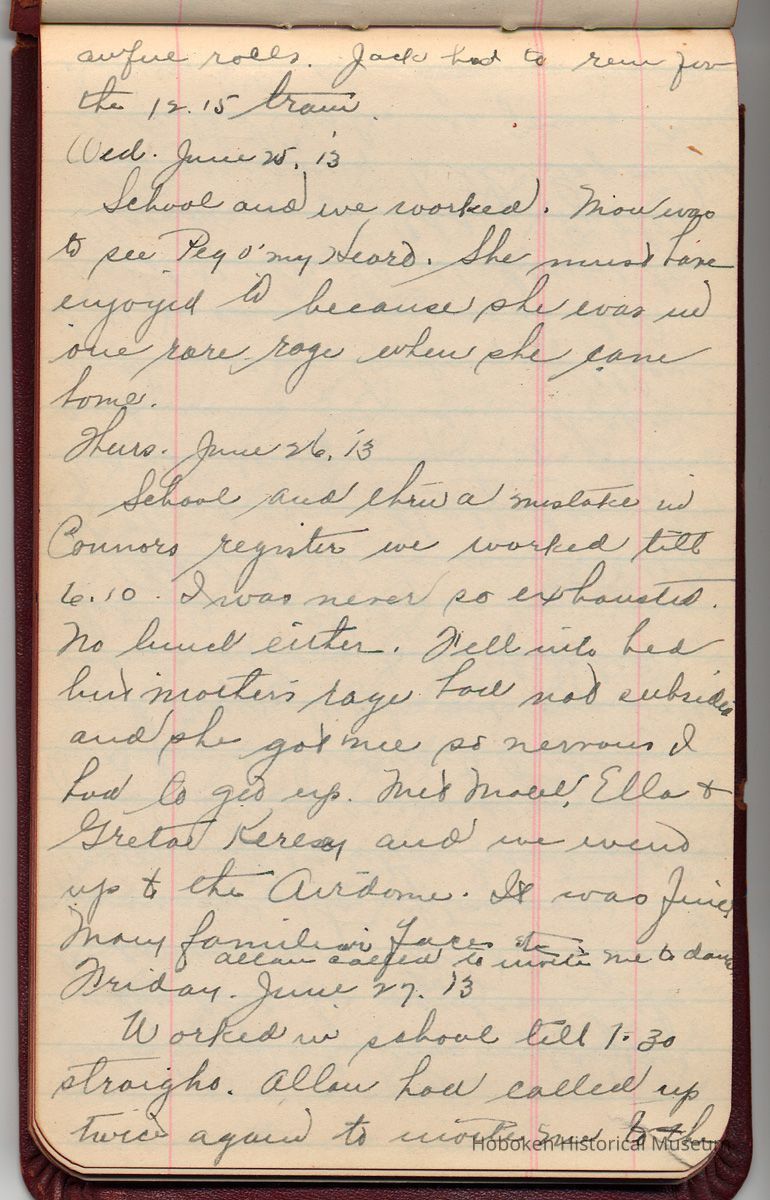 awful rolls. Jack had to run for
the 12.15 train.
Wed. June 25, '13
School and we worked. Mom was
to see Peg o' my Heart. She must have
enjoyed it because she was in
one rare rage when she came
home.
Thurs. June 26, '13
School and thru a mistake in
Connors register we worked till
6.10. I was never so exhausted.
No lunch either. Fell into bed
but mother's rage had not subsided
and she got me so nervous I
had to get up. Met Maud, Ella &
Greta and we went
up to the Airdome. It was fine.
Many familiar faces etc
Allan called to invite me to dance
Friday. June 27, 13
Worked in school till 1-30
straight. Allan had called up
twice again to invite me to th
Hoboken Historical Museum